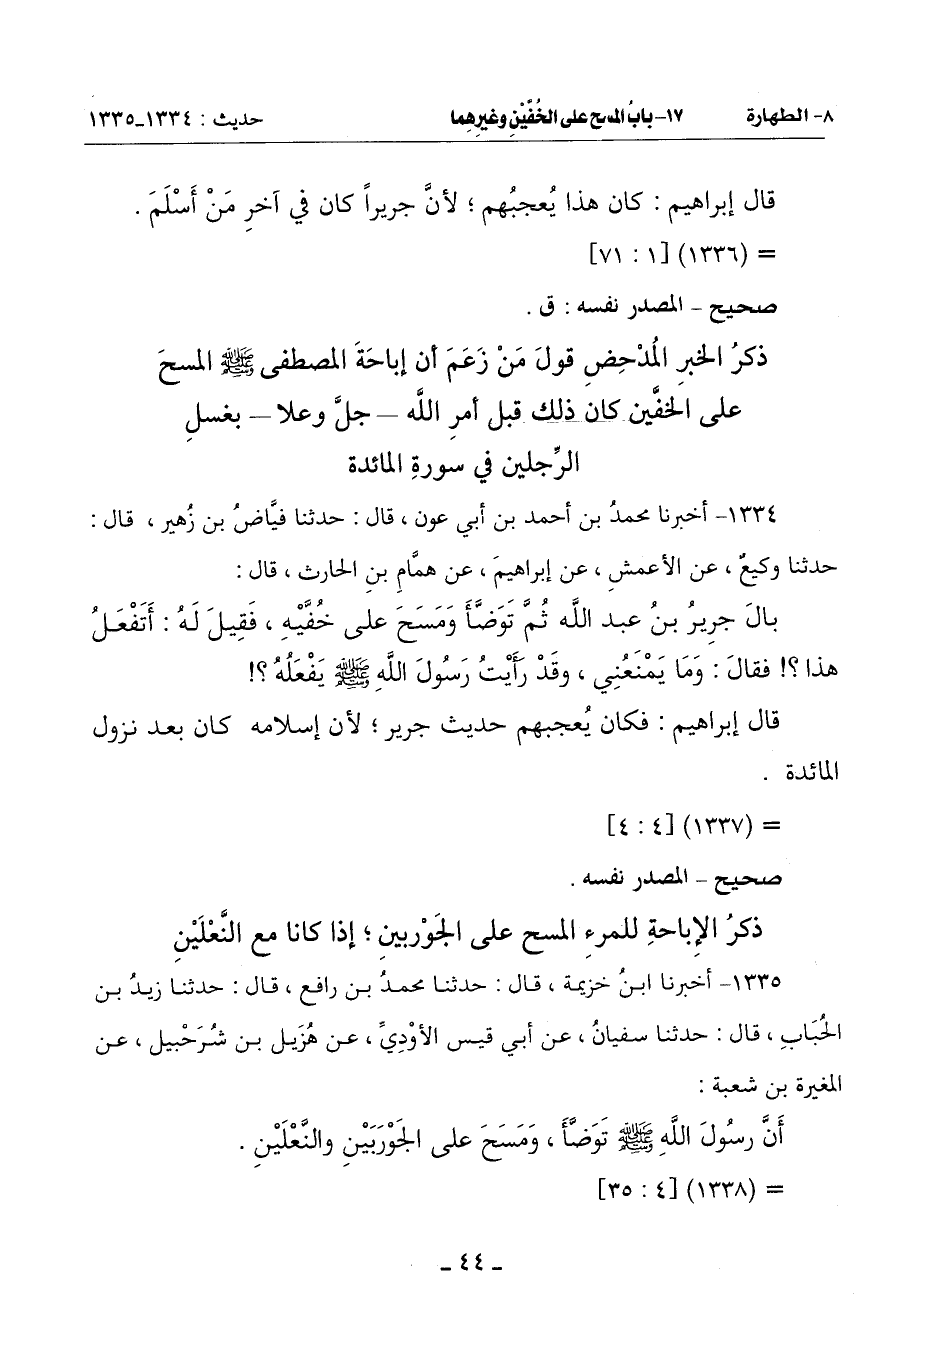 ٨- الطهارة ١٧- بابُ المسح على الخُفَّيْنِ وغيرِهِما حديث : ١٣٣٤-١٣٣٥
قال إبراهيم : كان هذا يُعجبُهم ؛ لأنَّ جريراً كان في آخرِ مَنْ أَسْلَمَ .
= (١٣٣٦) [١ : ٧١]
صحيح - المصدر نفسه : ق .
ذكرُ الخبرِ المُدْحِضِ قولَ مَنْ زَعَمَ أن إباحَةَ المصطفى ﷺ المسحَ
على الخفَّين كان ذلك قبل أمرِ اللَّه – جلَّ وعلا – بغسلِ
الرِّجلين في سورةِ المائدة
١٣٣٤- أخبرنا محمدُ بن أحمد بن أبي عون ، قال : حدثنا فيَّاضُ بن زُهير ، قال :
حدثنا وكيعٌ ، عن الأعمش ، عن إبراهيمَ ، عن همَّامِ بنِ الحارث ، قال :
بالَ جريرُ بنُ عبد اللَّه ثُمَّ تَوَضَّأَ وَمَسَحَ على خُفَّيْهِ ، فَقِيلَ لَهُ : أَتَفْعَلُ
هذا ؟! فقالَ : وَمَا يَمْنَعُنِي ، وقَدْ رَأَيْتُ رَسُولَ اللَّهِ ﷺ يَفْعَلُهُ ؟!
قال إبراهيم : فكان يُعجبهم حديث جرير ؛ لأن إسلامه كان بعد نزول
المائدة .
= (١٣٣٧) [٤ : ٤]
صحيح - المصدر نفسه .
ذكرُ الإباحةِ للمرءِ المسح على الجَوْربينِ ؛ إذا كانا مع النَّعْلَيْنِ
١٣٣٥- أخبرنا ابنُ خزيمة ، قال : حدثنا محمدُ بن رافع ، قال : حدثنا زيدُ بن
الحُبَابِ ، قال : حدثنا سفيانُ ، عن أبي قيس الأوْدِيِّ ، عن هُزَيل بن شُرَحْبيل ، عن
المغيرة بن شعبة :
أَنَّ رسُولَ اللَّهِ ﷺ تَوَضَّأَ ، وَمَسَحَ على الجَوْرَبَيْنِ والنَّعْلَيْنِ .
= (١٣٣٨) [٤ : ٣٥]
- ٤٤ -